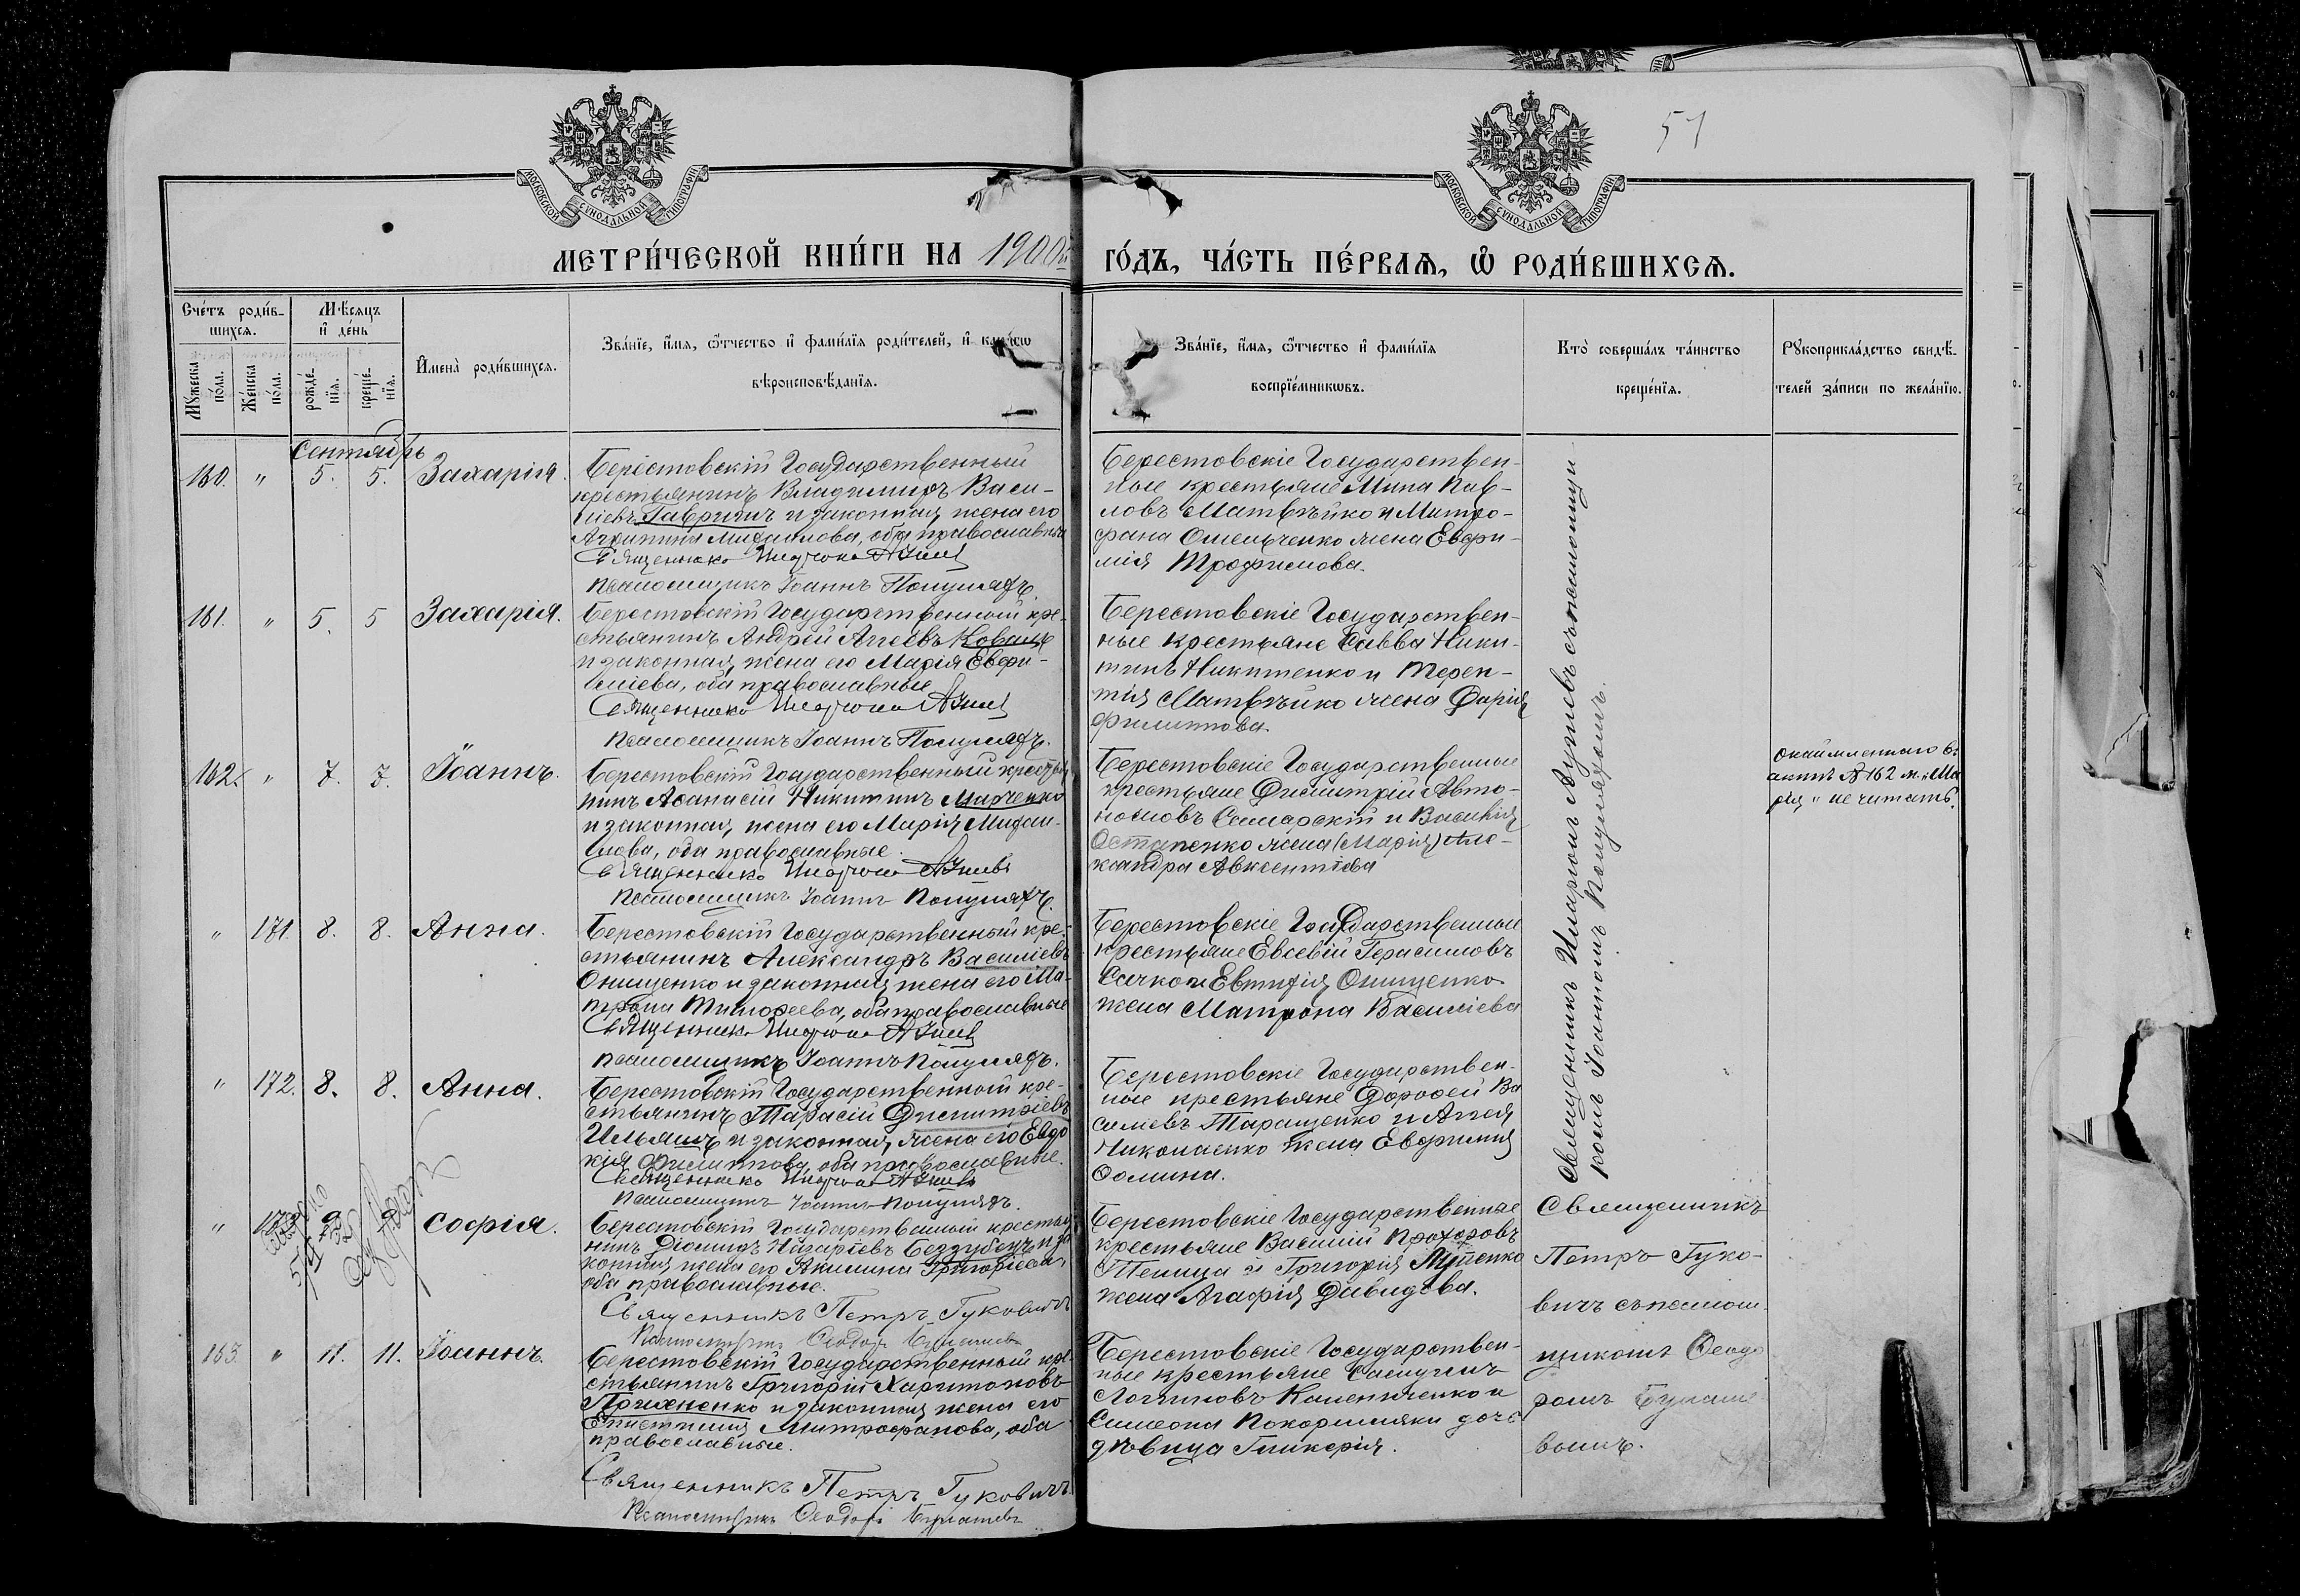 51
МОСКОВСКОЙ СУНОДАЛЬНОЙ ТИПОГРАФІИ
МОСКОВСКОЙ СУНОДАЛЬНОЙ ТИПОГРАФІИ
МЕТРИ́ЧЕСКОЙ КНИ́ГИ НА 1900й ГО́ДЪ, ЧА́СТЬ ПЕ́РВАѦ, Ѡ РОДИ́ВШИХСѦ.
Сче́тъ роди́в-
шихсѧ.
Мꙋ́жеска по́ла.
Же́нска по́ла.
Мѣ́сѧцъ
и҆ де́нь
рожде́-
нїѧ.
креще́-
нїѧ.
И҆мена̀ роди́вшихсѧ.
Зва́нїе, и҆́мѧ, ѻ҆́тчество и҆ фами́лїѧ роди́телей, и҆ како́гѡ
вѣроисповѣ́данїѧ.
Зва́нїе, и҆́мѧ, ѻ҆́тчество и҆ фами́лїѧ
воспрїе́мникѡвъ.
Кто̀ соверша́лъ та́инство
креще́нїѧ.
Рꙋкоприкла́дство свидѣ́-
телей за́писи по жела́нїю.
Сентябрь
160. " 5. 5. Захарія.
Берестовскій Государственный
крестьянинъ Владиміръ Васи-
ліевъ Гавришъ и законная жена его
Агрипина Михаилова, оба православные
Священникъ Иларіонъ
Псаломщикъ Іоаннъ Полуляхъ.
Берестовскіе Государствен-
ные крестьяне Мина Пав-
ловъ Матвѣйко и Митро-
фана Омельченко жена Евфи-
мія Трофимова.
161. " 5. 5 Захарія.
Берестовскій Государственный кре-
стьянинъ Андрей Аггеевъ Коваль
и законная жена его Марія Евфи-
міева, оба православные
Священникъ Иларіонъ
Псаломщикъ Іоаннъ Полуляхъ.
Берестовскіе Государствен-
ные крестьяне Савва Ники-
тинъ Никитенко и Терен-
тія Матвѣйко жена Дарія
Филиппова.
162. " 7. 7. Іоаннъ.
Берестовскій Государственный крестья-
нинъ Аѳанасій Никитинъ Марченко
и законная жена его Марія Михаи-
лова, оба православные.
Священникъ Иларіонъ
Псаломщикъ Іоаннъ Полуляхъ.
Берестовскіе Государственные
крестьяне Димитрій Авто-
номовъ Самарскій и Василія
Остапенко жена (Марія) Але-
ксандра Авксентіева
окаймленнаго въ
актѣ № 162 м. „Ма
рія" не читать.
" 171. 8. 8. Анна.
Берестовскій Государственный кре-
стьянинъ Александръ Василіевъ
Онищенко и законная жена его Ма-
трона Тимоѳеева, оба православные
Священникъ Иларіонъ
Псаломщикъ Іоаннъ Полуляхъ.
Берестовскіе Государственные
крестьяне Евсевій Герасимовъ
Сачко и Евтихія Онищенко
жена Матрона Василіева
" 172. 8. 8. Анна.
Берестовскій Государственный кре-
стьянинъ Тарасій Димитріевъ
Ильяшъ и законная жена его Евдо
кія Филиппова, оба православные.
Священникъ Иларіонъ
Псаломщикъ Іоаннъ Полуляхъ.
Берестовскіе Государствен-
ные крестьяне Дороѳей Ва
силіевъ Таращенко и Аггея
Николаенко жена Евфимія
Ѳомина.
Священникъ Иларіонъ съ псаломщи
комъ Іоанномъ Полуляхомъ.
" 173. 9. 9. Софія.
Берестовскій Государственный крестья
нинъ Діомидъ Назаріевъ Беззубецъ и за
конная жена его Акилина Григоріева,
оба православные.
Священникъ Петръ Гуковичъ
Псаломщикъ Ѳеодоръ
Берестовскіе Государственные
крестьяне Василій Прохоровъ
Телица и Григорія
жена Агафія Давидова.
Священникъ
Петръ Гуко-
вичъ съ псалом-
щикомъ Ѳеодо
ромъ
163. " 11. 11. Іоаннъ.
Берестовскій Государственный кре-
стьянинъ Григорій Харитоновъ
и законная жена его
Митрофанова, оба
православные.
Священникъ Петръ Гуковичъ.
Псаломщикъ Ѳеодоръ
Берестовскіе Государствен-
ные крестьяне Самуилъ
Логгиновъ и
Симеона дочь
дѣвица Гликерія.